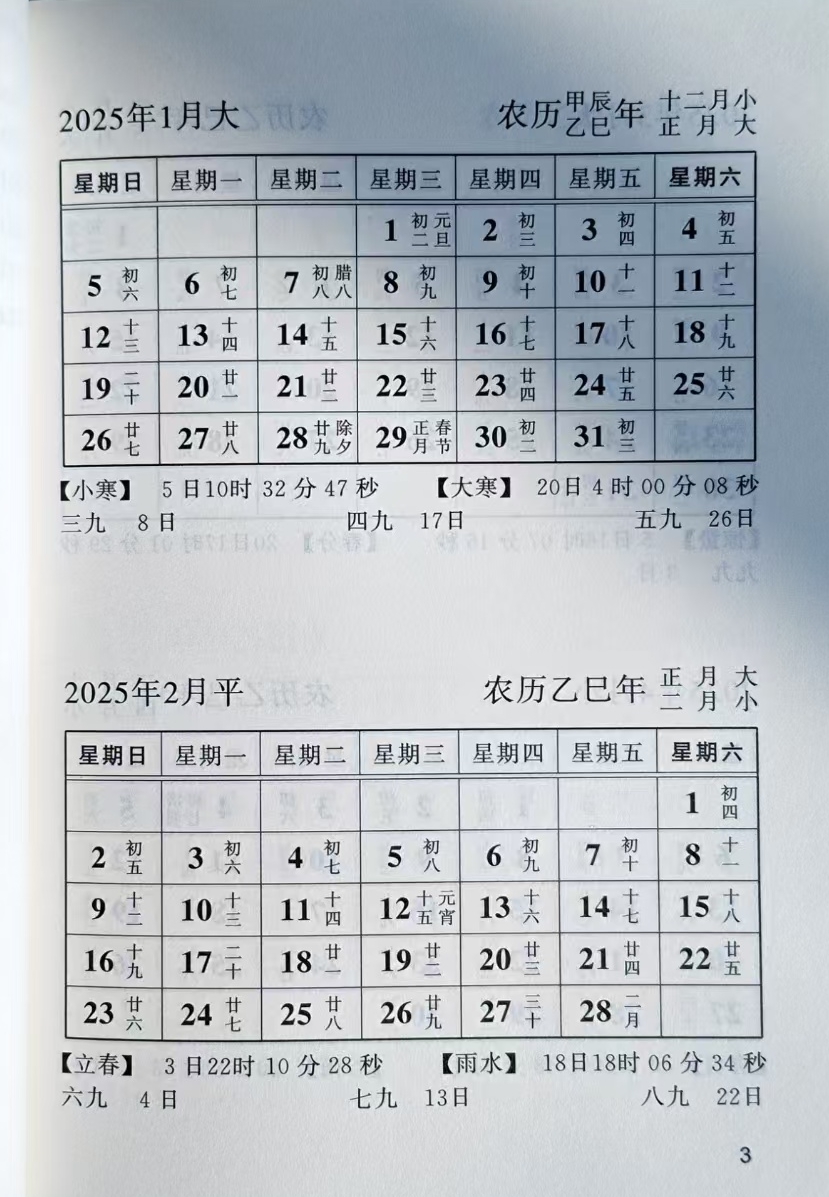 2025年1月大 农历甲辰乙巳年 十二月小 正月大
星期日 星期一 星期二 星期三 星期四 星期五 星期六
1 初二 元旦 2 初三 3 初四 4 初五
5 初六 6 初七 7 初八 腊八 8 初九 9 初十 10 十一 11 十二
12 十三 13 十四 14 十五 15 十六 16 十七 17 十八 18 十九
19 二十 20 廿一 21 廿二 22 廿三 23 廿四 24 廿五 25 廿六
26 廿七 27 廿八 28 廿九 除夕 29 正月 春节 30 初二 31 初三
【小寒】 5日10时32分47秒 【大寒】 20日4时00分08秒
三九 8日 四九 17日 五九 26日
2025年2月平 农历乙巳年 正月大 二月小
星期日 星期一 星期二 星期三 星期四 星期五 星期六
1 初四
2 初五 3 初六 4 初七 5 初八 6 初九 7 初十 8 十一
9 十二 10 十三 11 十四 12 十五 元宵 13 十六 14 十七 15 十八
16 十九 17 二十 18 廿一 19 廿二 20 廿三 21 廿四 22 廿五
23 廿六 24 廿七 25 廿八 26 廿九 27 三十 28 二月
【立春】 3日22时10分28秒 【雨水】 18日18时06分34秒
六九 4日 七九 13日 八九 22日
3